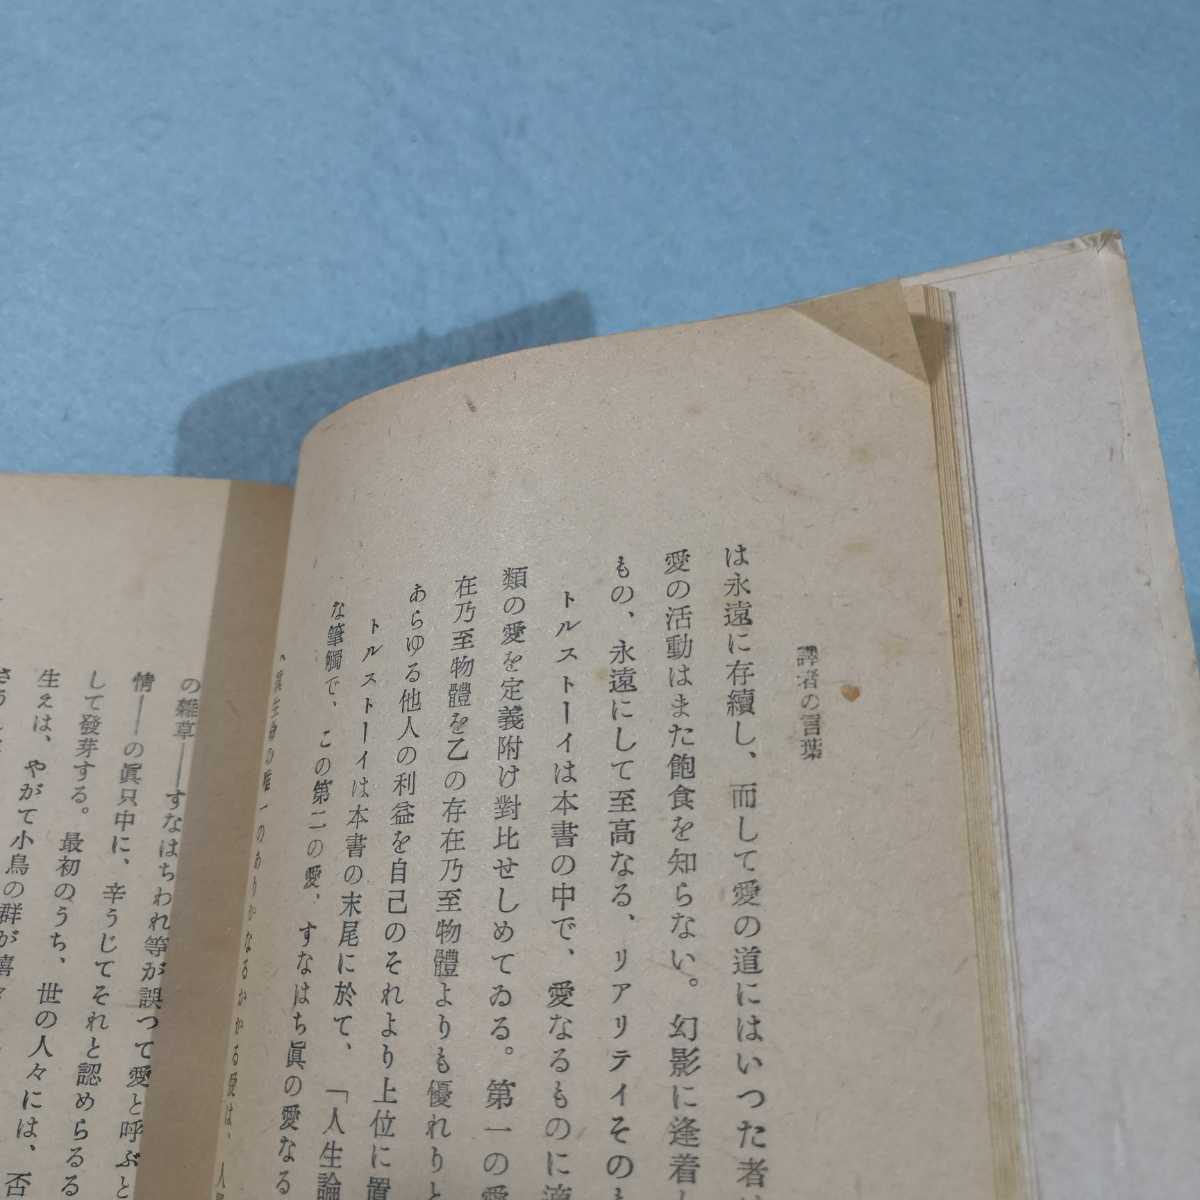 譯者の言葉
は永遠に存續し、而して愛の道にはいつた者は
愛の活動はまた飽食を知らない。幻影に逢着し
もの、永遠にして至高なる、リアリテイそのも
トルストーイは本書の中で、愛なるものに
類の愛を定義附け對比せしめてゐる。第一の愛
在乃至物體を乙の存在乃至物體よりも優れりと
あらゆる他人の利益を自己のそれより上位に置
トルストーイは本書の末尾に於て、「人生論
な筆觸で、この第二の愛、すなはち眞の愛なる
の唯一のありかなるかかる愛は、人
の雜草――すなはちわれ等が誤つて愛と呼ぶと
情――の眞只中に、辛うじてそれと認めらるる
して發芽する。最初のうち、世の人々には、否
生えは、やがて小鳥の群が